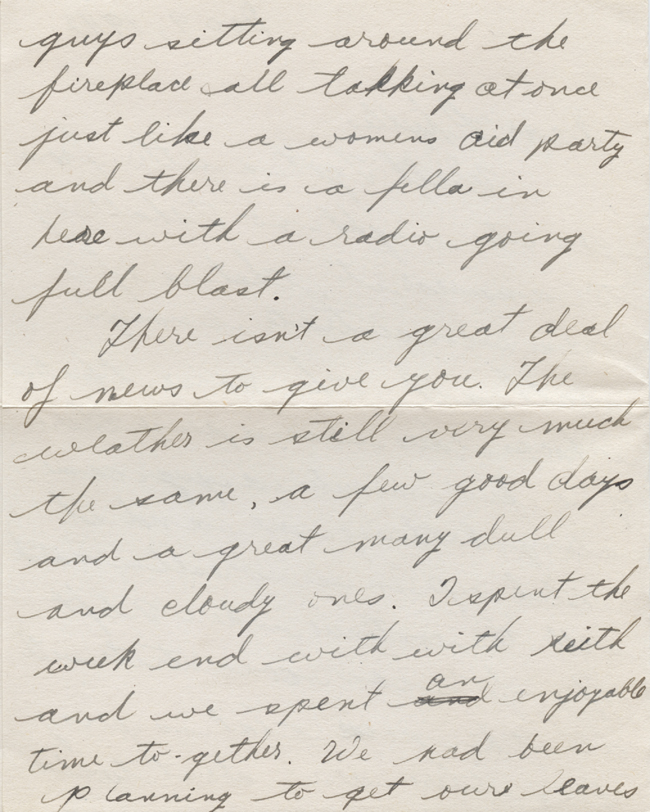 guys sitting around the
fireplace all talking at once
just like a womens aid party
and there is a fella in
here with a radio going
full blast.
There isn't a great deal
of news to give you. The
weather is still very much
the same, a few good days
and a great many dull
and cloudy ones. I spent the
week end with with Keith
an
and we spent and enjoyable
time to-gether. We had been
planning to get ours leaves